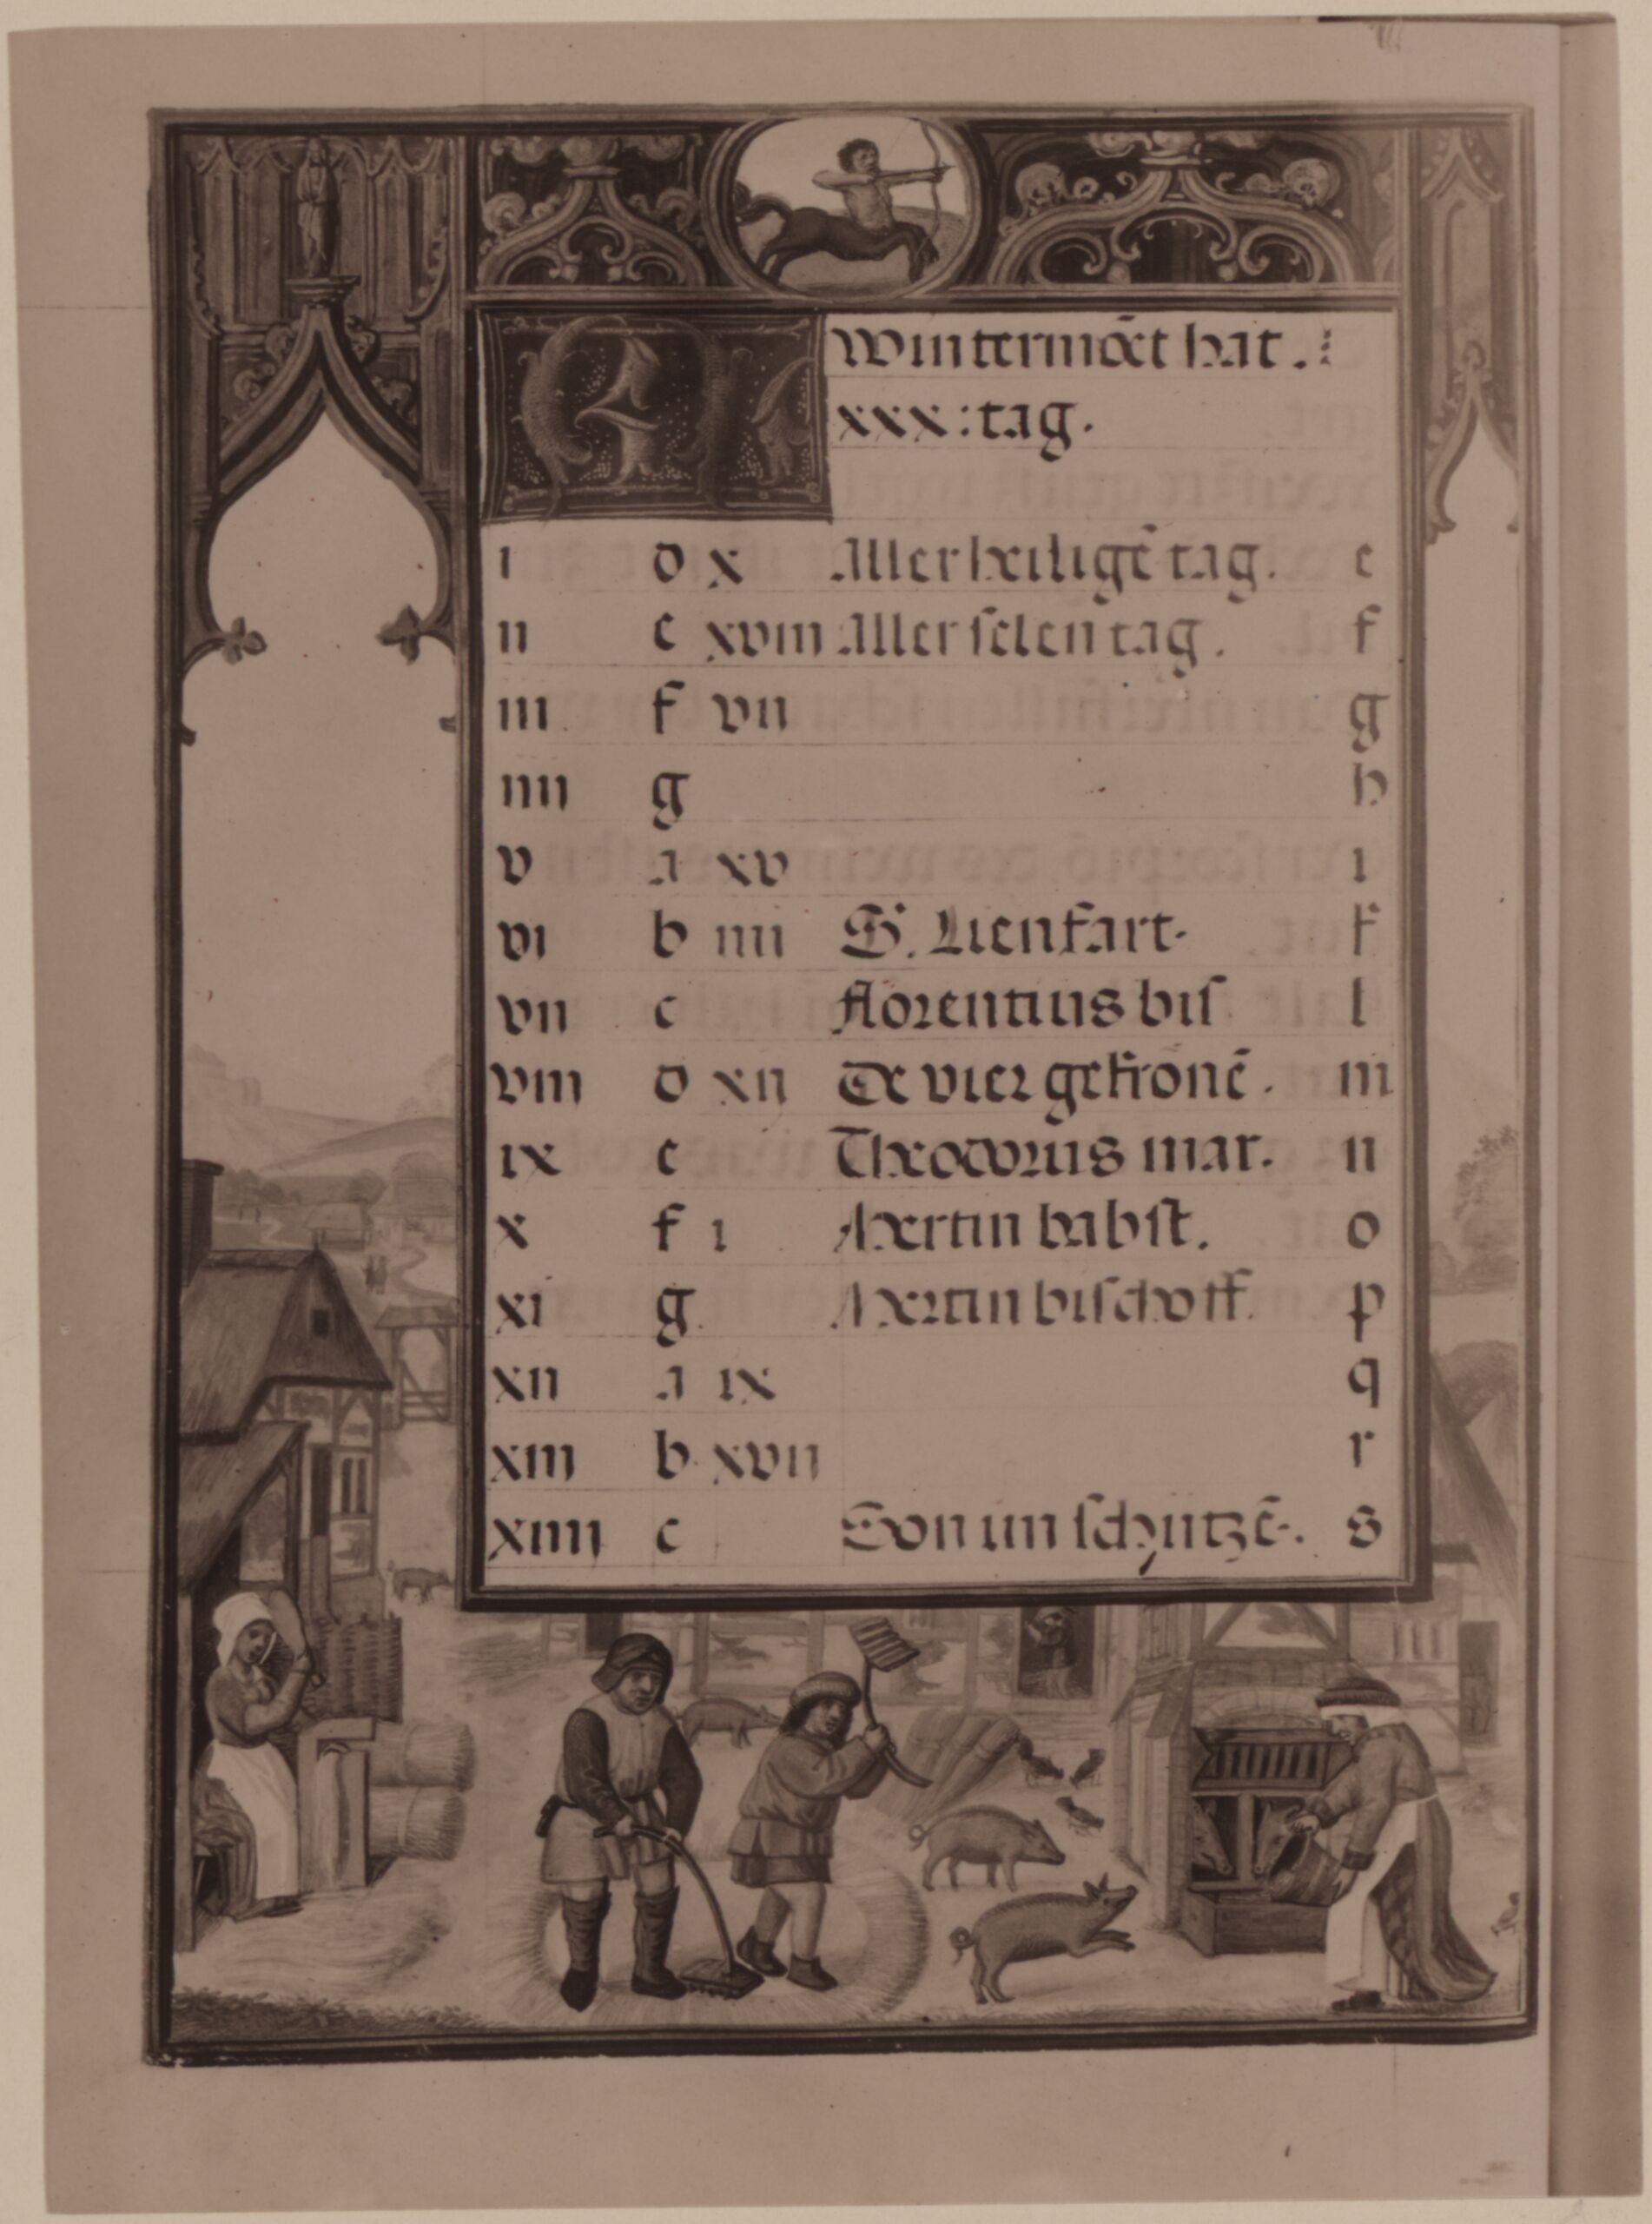 Wintermōet hat.
xxx: tag.
i d x Aller heiligē tag. e
ii e xviii Aller selen tag. f
iii f vii g
iiii g h
v a xv i
vi b iiii S. Lienhart. k
vii c florentius bis l
viii d xii De vier gekronē. m
ix e Theodorus mar. n
x f i Mertin babst. o
xi g Mertin bischoff. p
xii a ix q
xiii b xvii r
xiiii c Son im schützē. s